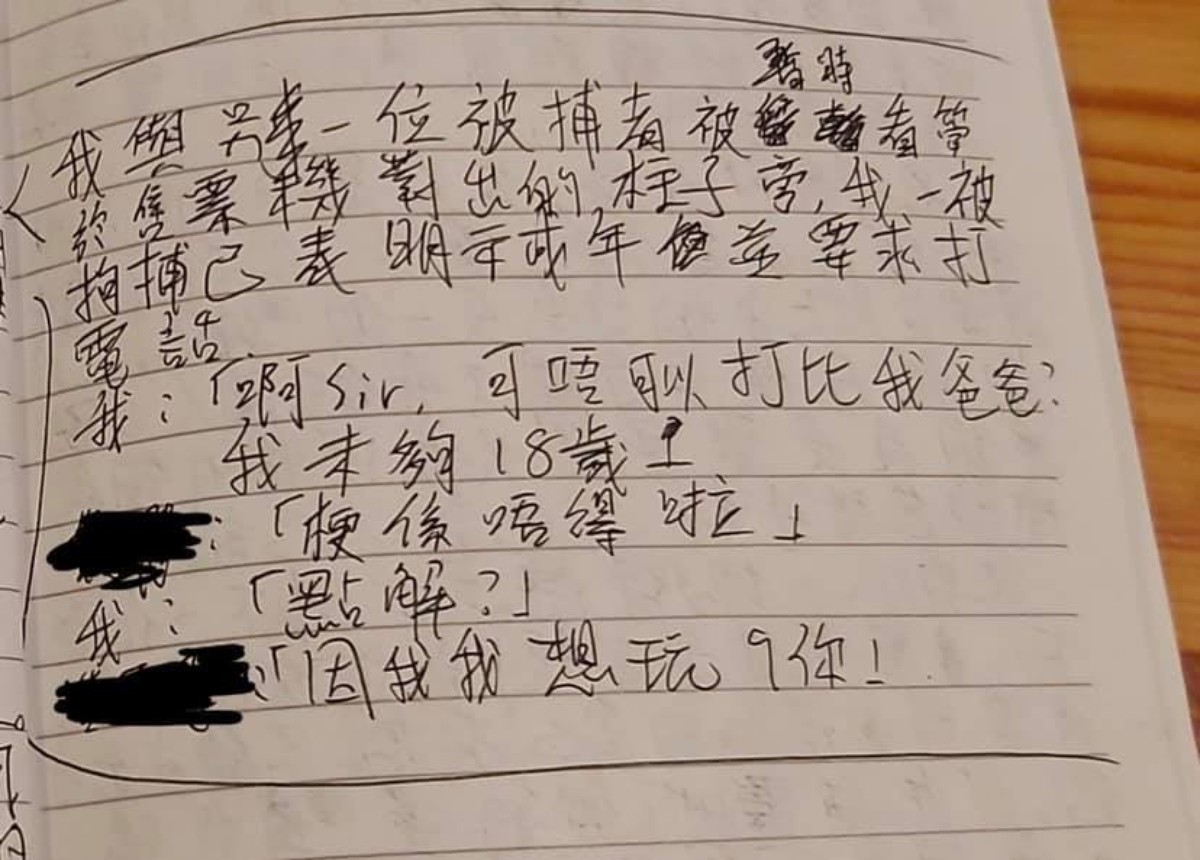 暫時
我與另一位被捕者被看管
於售票機對出的柱子旁,我一被
拘捕已表明未成年並要求打
電話.
我:「啊Sir,可唔可以打比我爸爸?
我未夠18歲」
:「梗係唔得啦」
我:「點解?」
:「因我我想玩9你」